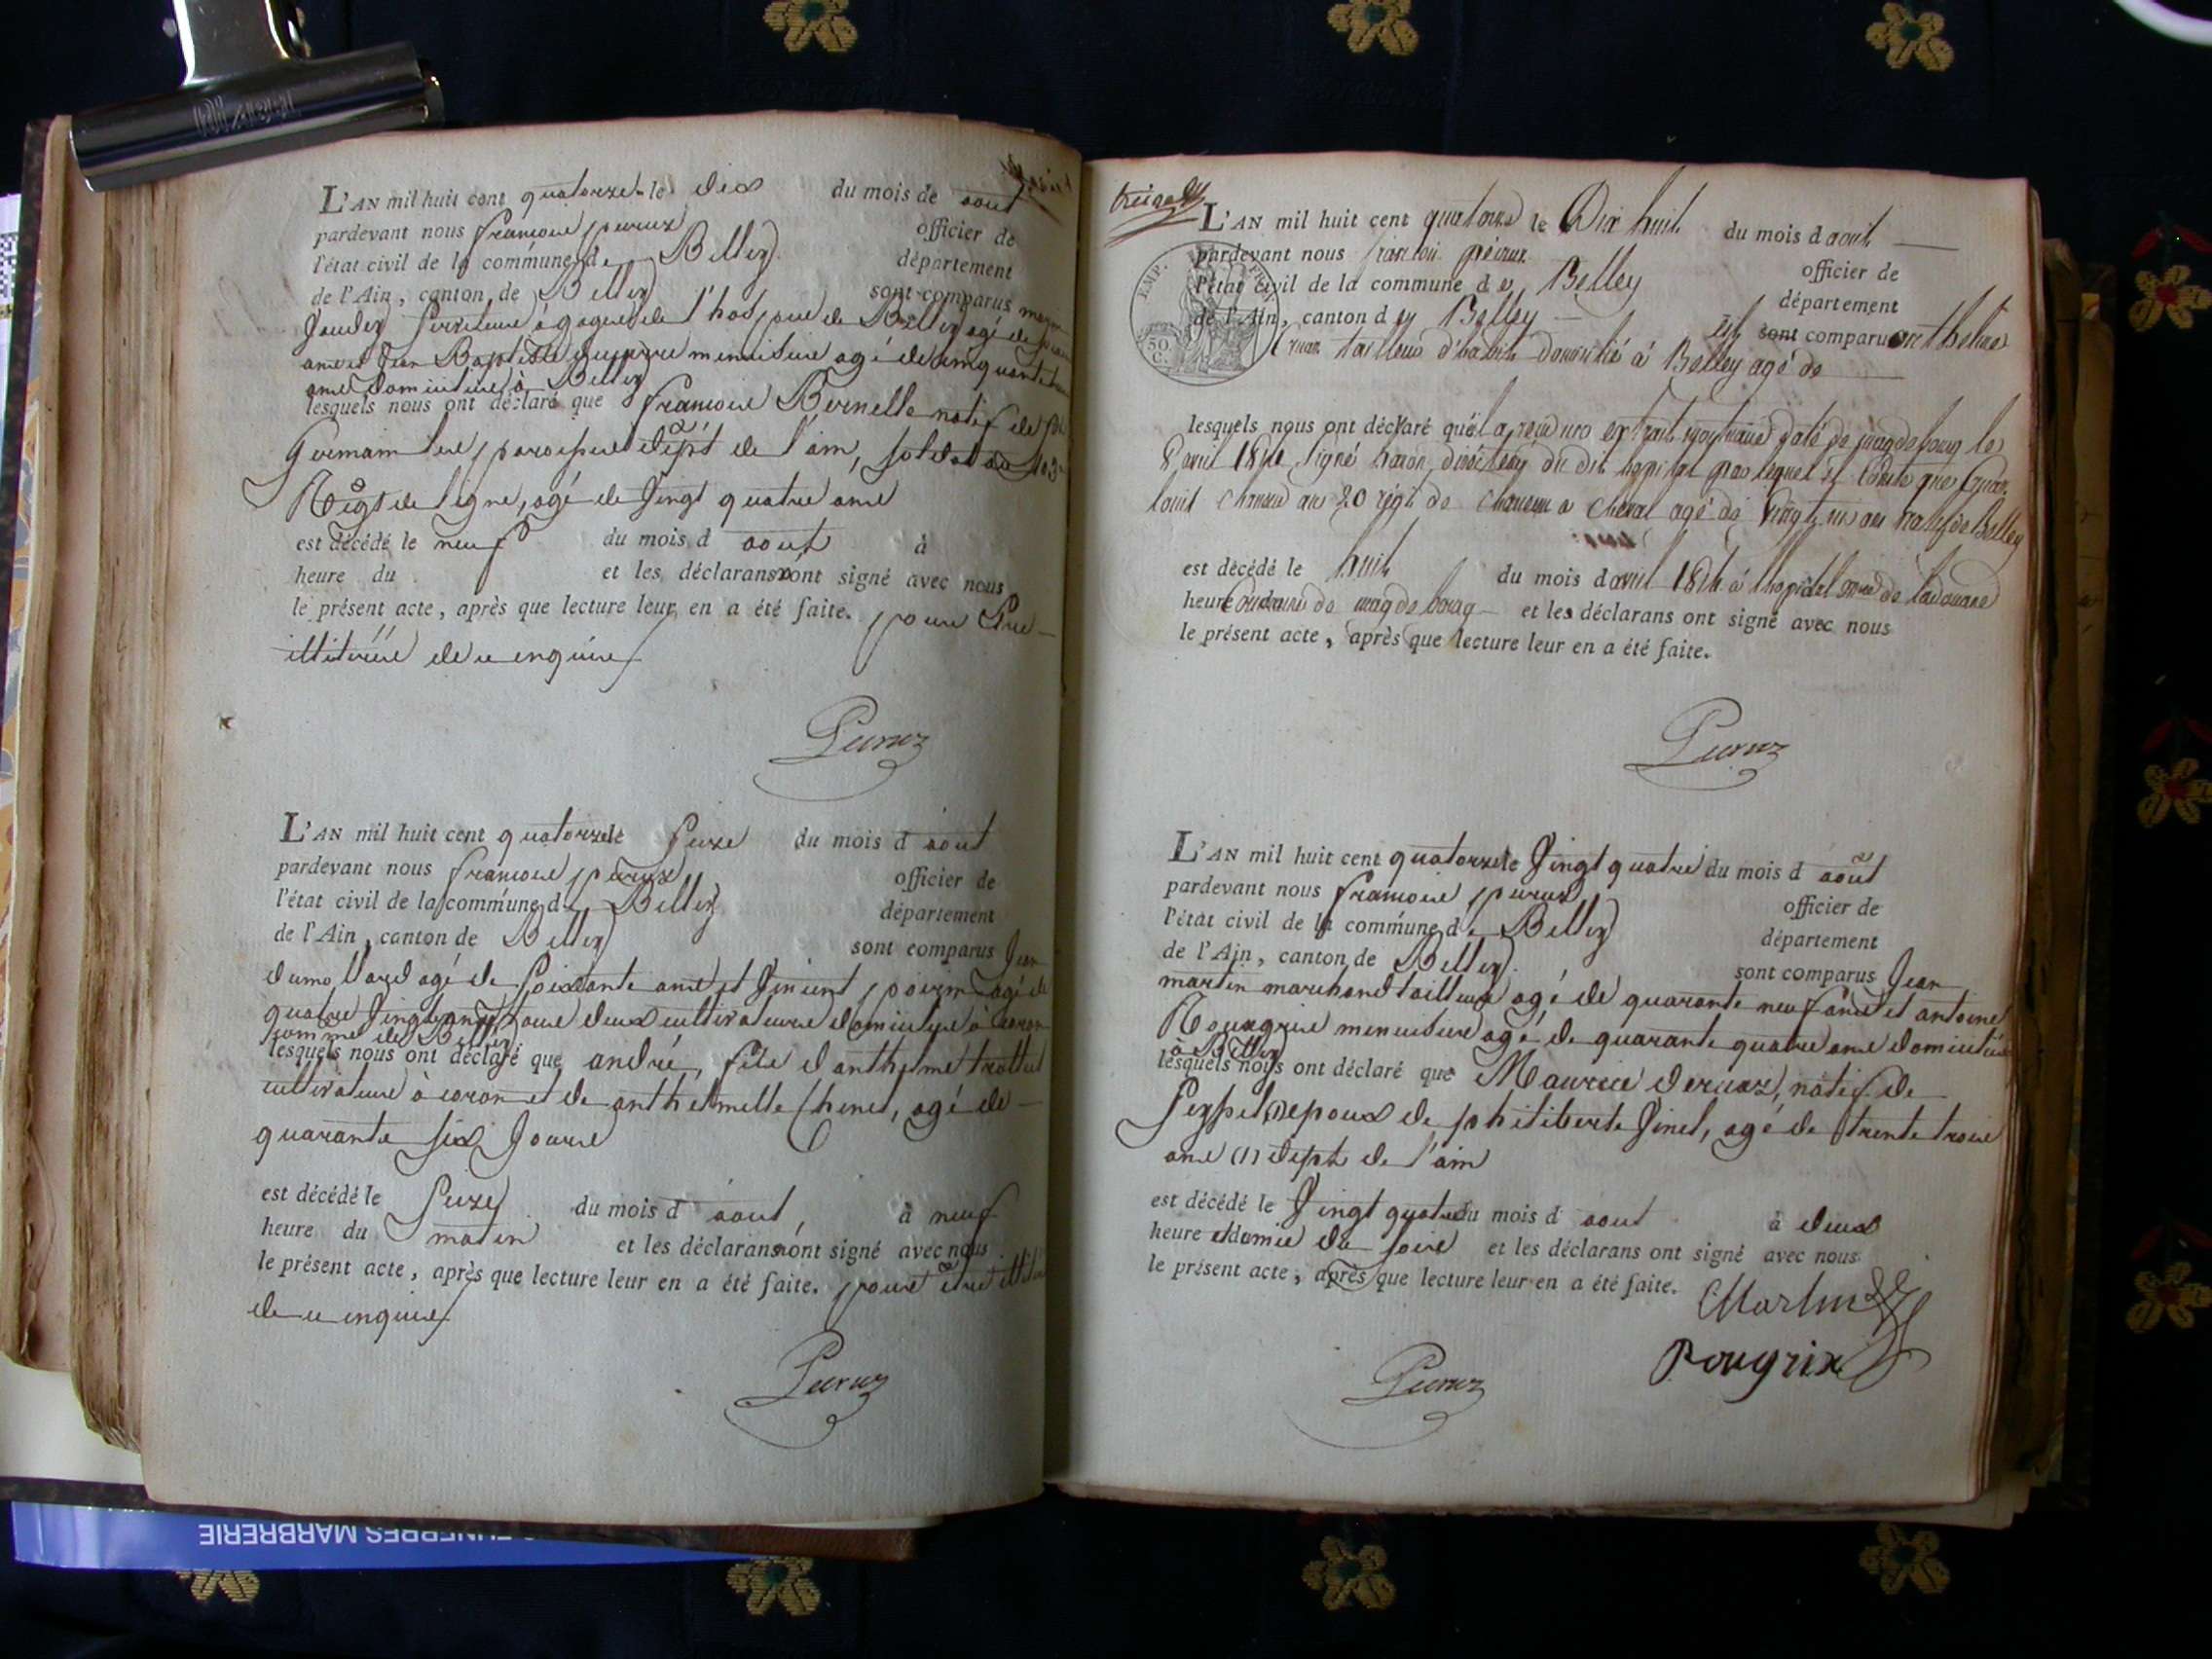 L'AN mil huit cent quatorze le dix du mois de aout
pardevant nous francois peruz officier de
l'état civil de la commune de Belley département
de l'Ain, canton de Belley sont comparus
serviteur à gages de l'hospice de Belley agé de
ans et Jean Baptiste menuisier agé de cinquante
ans domiciliés à Belley
lesquels nous ont déclaré que francois Bernelle natif de St
Germain les paroisses dépt de l'ain, soldat au 103e
Régt de ligne, agé de vingt quatre ans
est décédé le neuf du mois d aout à
heure du et les déclarans n'ont signé avec nous
le présent acte, après que lecture leur en a été faite. pour être
illitérés de ce enquis
Peruz
L'AN mil huit cent quatorze le seize du mois d aout
pardevant nous francois peruz officier de
l'état civil de la commune de Belley département
de l'Ain, canton de Belley sont comparus Jean
dumollard agé de soixante ans et vincent poirin agé de
quatre vingt ans tous deux cultivateurs domiciliés à coron
comme de Belley
lesquels nous ont déclaré que andré, fils d anthelme trollict
cultivateur à coron et de anthelmette Chenet, agé de
quarante six jours
est décédé le seize du mois d aout, à neuf
heure du matin et les déclarans n'ont signé avec nous
le présent acte, après que lecture leur en a été faite. pour être
de ce enquis
Peruz
L'AN mil huit cent quatorze le Dix huit du mois d aout
pardevant nous francois péruz officier de
l'état civil de la commune de Belley département
de l'Ain, canton de Belley est sont comparu anthelme
tailleur d'habits domicilié à Belley agé de
EMP. FR
50 C.
lesquels nous ont déclaré qu'il a reçu un extrait mortuaire daté de magdebourg le
8 avril 1814 signé baron, directeur du dit hopital par lequel il conste que
louis chasseur au 20 régt de chasseurs a cheval agé de vingt un ans natif de Belley
est décédé le huit du mois d avril 1814 à l'hopital de la douane
heure de magdebourg et les déclarans ont signé avec nous
le présent acte, après que lecture leur en a été faite.
Peruz
L'AN mil huit cent quatorze le vingt quatre du mois d aout
pardevant nous francois peruz officier de
l'état civil de la commune de Belley département
de l'Ain, canton de Belley sont comparus Jean
martin marchand tailleur agé de quarante neuf ans et antoine
Rougrix menuisier agé de quarante quatre ans domiciliés
à Belley
lesquels nous ont déclaré que Maurice deruaz, natif de
Seyssel (1) epoux de philiberte vinet, agé de trente trois
ans (1) dépt de l'ain
est décédé le vingt quatre du mois d aout à deux
heure et demie du soir et les déclarans ont signé avec nous
le présent acte, après que lecture leur en a été faite.
Martin
Rougrix
Peruz
FUNEBRES MARBRERIE